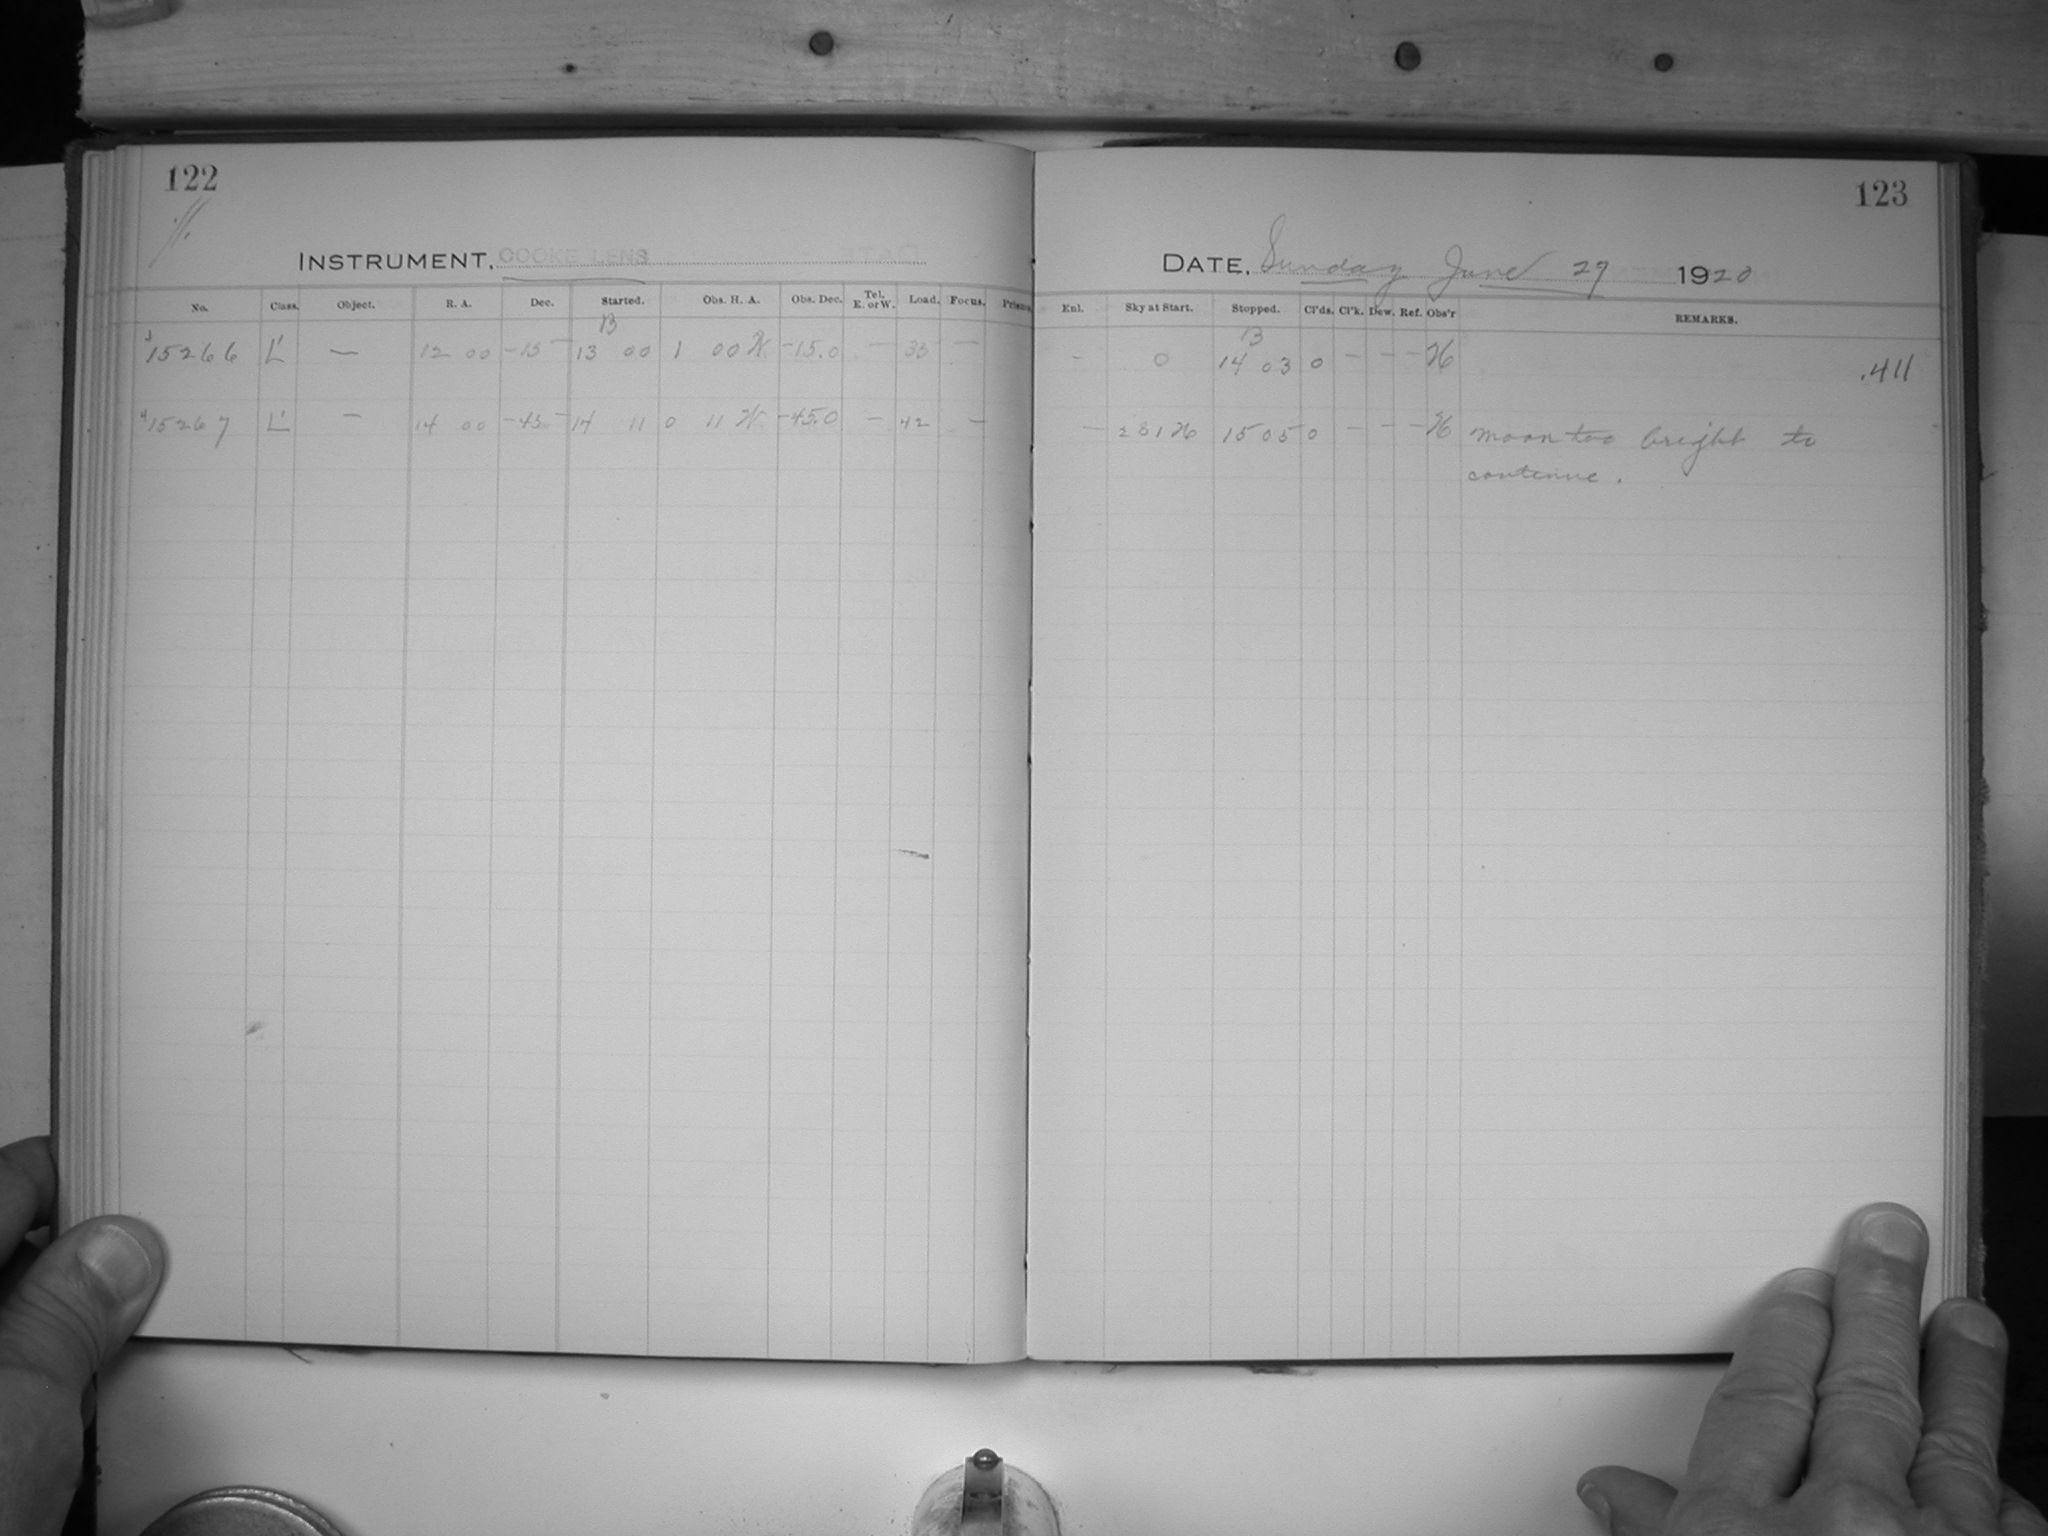 122
INSTRUMENT, COOKE LENS
No. Class. Object. R. A. Dec. Started. Obs. H. A. Obs. Dec. Tel. E. or W. Load. Focus. Prisms.
B
3 15266 L' — 12 00 -15 13 00 1 00 W -15.0 — 35 —
4 15267 L' — 14 00 -45 14 11 0 11 W -45.0 — 42 —
123
DATE, Sunday June 1920
Enl. Sky at Start. Stopped. Cl'ds. Cl'k. Dew. Ref. Obs'r REMARKS.
B
- 0 14 03 0 — — — H .411
— 15 05 0 — — — H moon too bright to
continue.